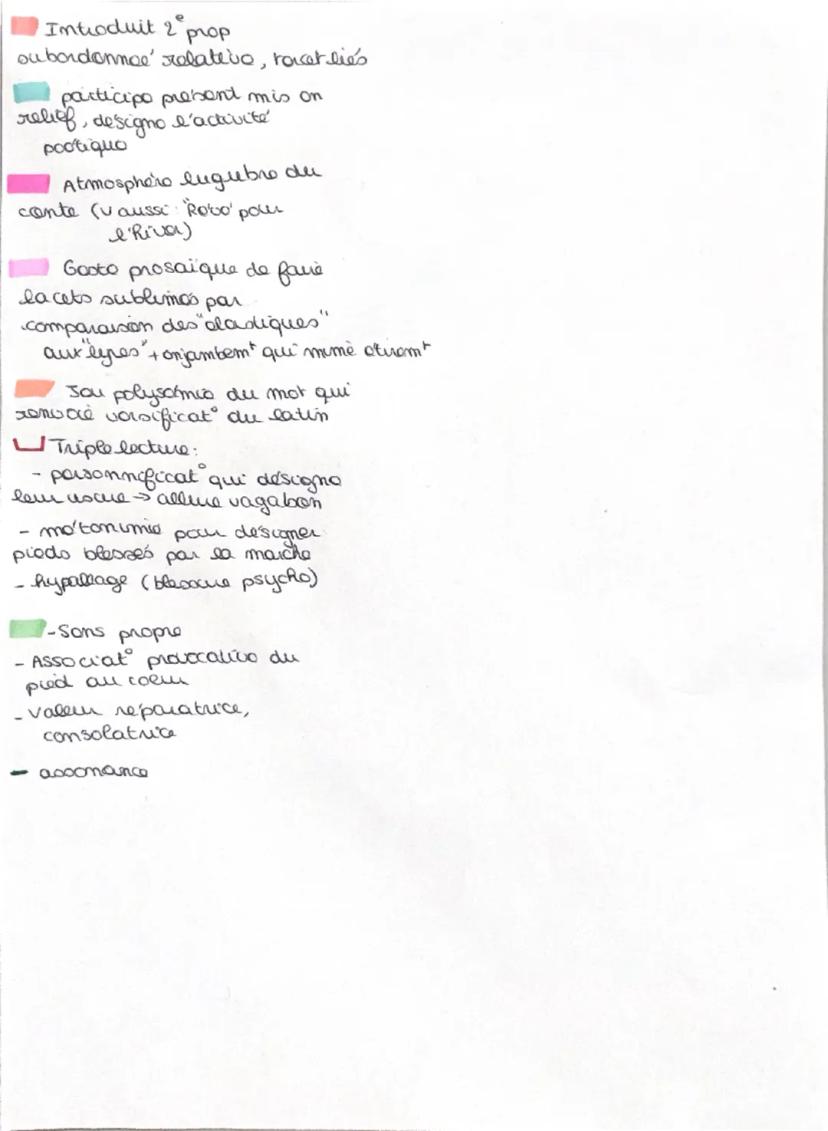 Introduit 2e prop
subordonneé relative, rацet liés
participe présent mis en
relief, désigne l'activité
poétique
Atmosphère lugubre du
conte (v aussi "Rêve" pour
l'hiver)
Geste prosaïque de faire
lacets sublimés par
comparaison des "élastiques"
aux "lyres" + enjambemt qui mime étiremt
Jeu polysémie du mot qui
renvoie versificat° du latin
Triple lecture:
- personnificat° qui désigne
leur usure → allure vagabon
- métonymie pour désigner
pieds blessés par la marche
- hypallage (blessure psycho)
- Sens propre
- Associat° provocative du
pied au coeur
- valeur réparatrice,
consolatrice
- assonance